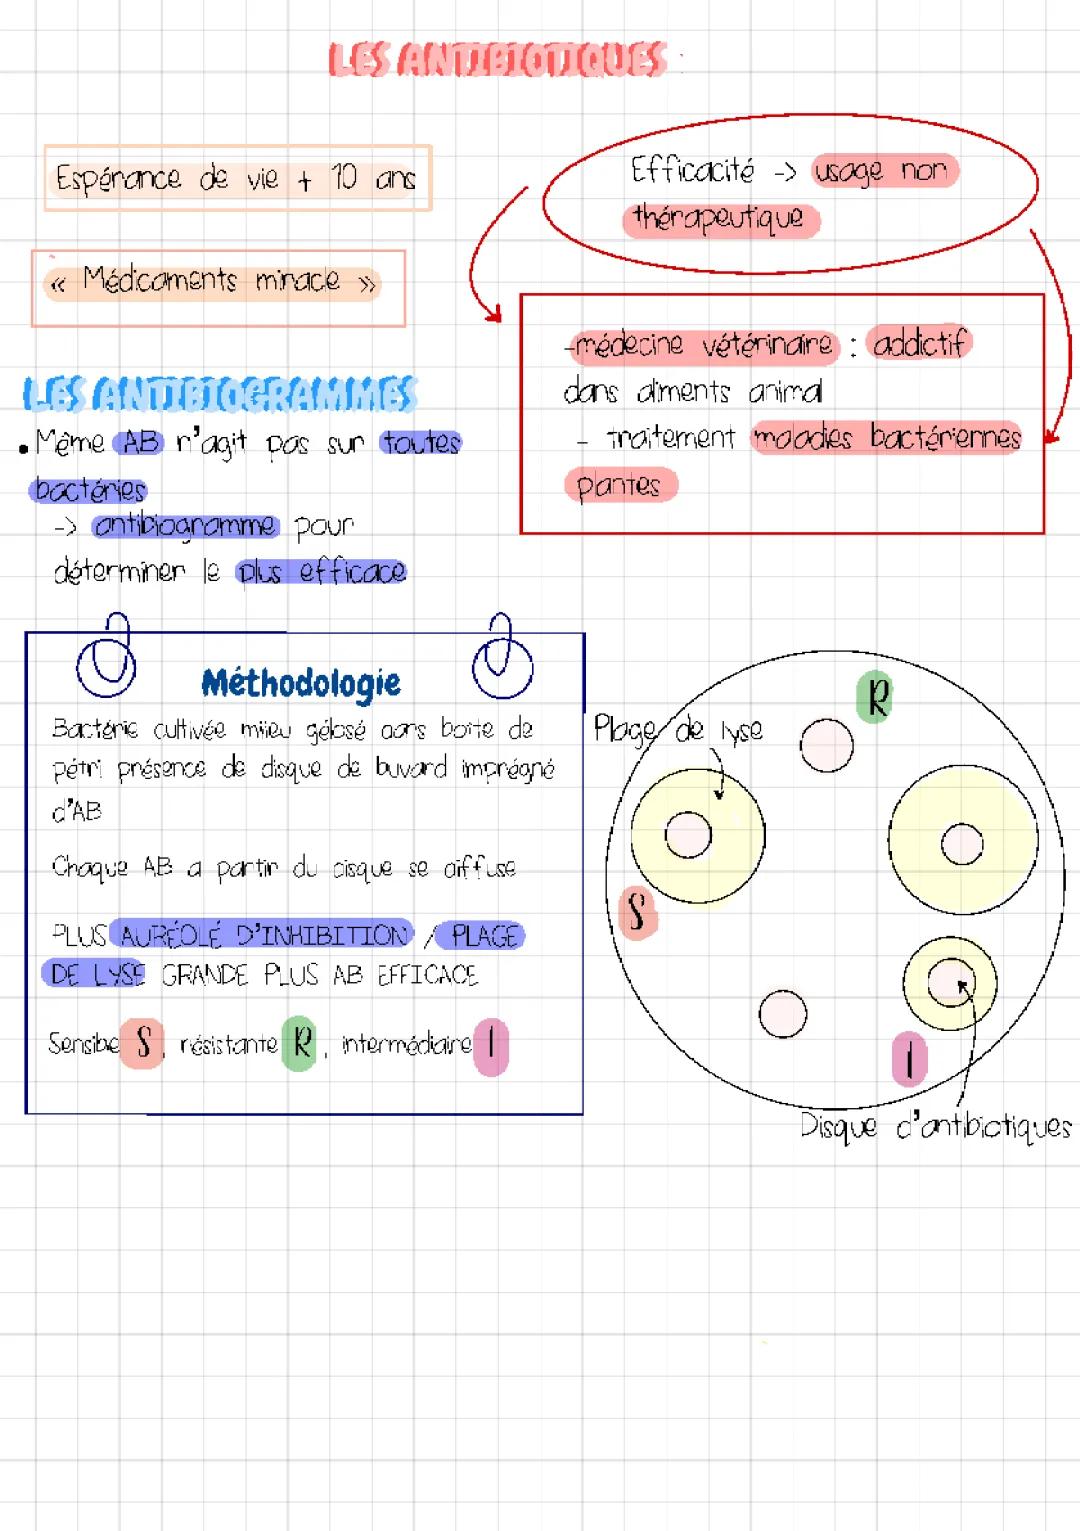 LES ANTIBIOTIQUES :
Espérance de vie + 10 ans
« Médicaments miracle »
Efficacité -> usage non
thérapeutique
-médecine vétérinaire : addictif
dans aliments animal
- traitement maladies bactériennes
plantes
LES ANTIBIOGRAMMES
• Même AB n'agit pas sur toutes
bactéries
-> antibiogramme pour
déterminer le plus efficace
Méthodologie
Bactérie cultivée milieu gélosé dans boite de
pétri présence de disque de buvard imprégné
d'AB
Chaque AB a partir du disque se diffuse
PLUS AURÉOLE D'INHIBITION / PLAGE
DE LYSE GRANDE PLUS AB EFFICACE
Sensible S, résistante R, intermédiaire I
Plage de lyse
R
S
I
Disque d'antibiotiques